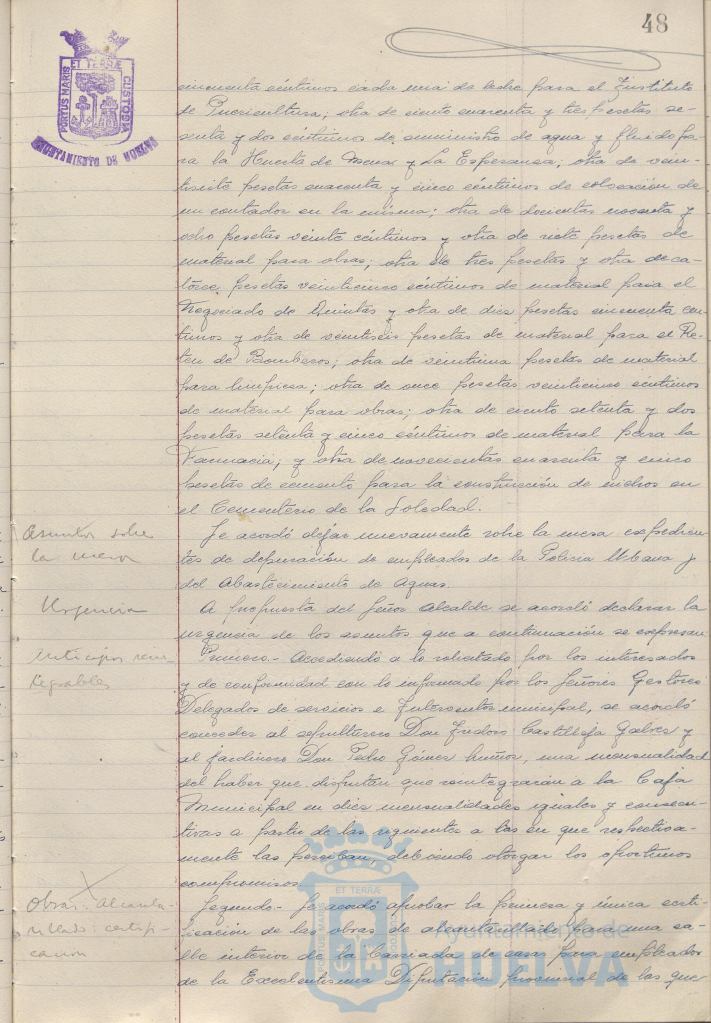 48
PORTUS MARIS ET TERRÆ CUSTODIA
AYUNTAMIENTO DE HUELVA
cincuenta céntimos cada una de leche para el Instituto
de Puericultura; otra de ciento cuarenta y tres pesetas se-
senta y dos céntimos de suministro de agua y fluido pa-
ra la Huerta de Mena y La Esperanza; otra de vein-
tisiete pesetas cuarenta y cinco céntimos de colocación de
un contador en la misma; otra de docientas noventa y
ocho pesetas veinte céntimos y otra de siete pesetas de
material para obras; otra de tres pesetas y otra de ca-
torce pesetas veinticinco céntimos de material para el
Negociado de Quintas y otra de diez pesetas cincuenta cén-
timos y otra de veintiseis pesetas de material para el Re-
ten de Bomberos; otra de veintiuna pesetas de material
para limpieza; otra de once pesetas veinticinco céntimos
de material para obras; otra de ciento setenta y dos
pesetas setenta y cinco céntimos de material para la
Farmacia; y otra de novecientas cuarenta y cinco
pesetas de cemento para la construcción de nichos en
el Cementerio de la Soledad.
Asuntos sobre
la mesa
Se acordó dejar nuevamente sobre la mesa expedien-
tes de depuración de empleados de la Policia Urbana y
del Abastecimiento de Aguas.
Urgencia
A propuesta del Señor Alcalde se acordó declarar la
urgencia de los asuntos que a continuación se expresan
Anticipos rein-
tegrables
Primero.- Accediendo a lo solicitado por los interesados
y de conformidad con lo informado por los Señores Gestores
Delegados de servicios e Interventor municipal, se acordó
conceder al sepulturero Don Isidoro Castilleja Galvez y
al jardinero Don Pedro Gómez Muñoz, una mensualidad
del haber que disfrutan que reintegrarán a la Caja
Municipal en diez mensualidades iguales y consecu-
tivas a partir de las siguientes a las en que respectiva-
mente las perciban, debiendo otorgar los oportunos
compromisos.
Obras: Alcanta-
rillado: certifi-
cación
Segundo.- Se acordó aprobar la primera y única certi-
ficación de las obras de alcantarillado para una ca-
lle interior de la Barriada de casas para empleados
de la Excelentisima Diputación provincial de las que
PORTUS MARIS ET TERRÆ CUSTODIA
Ayuntamiento de
HUELVA